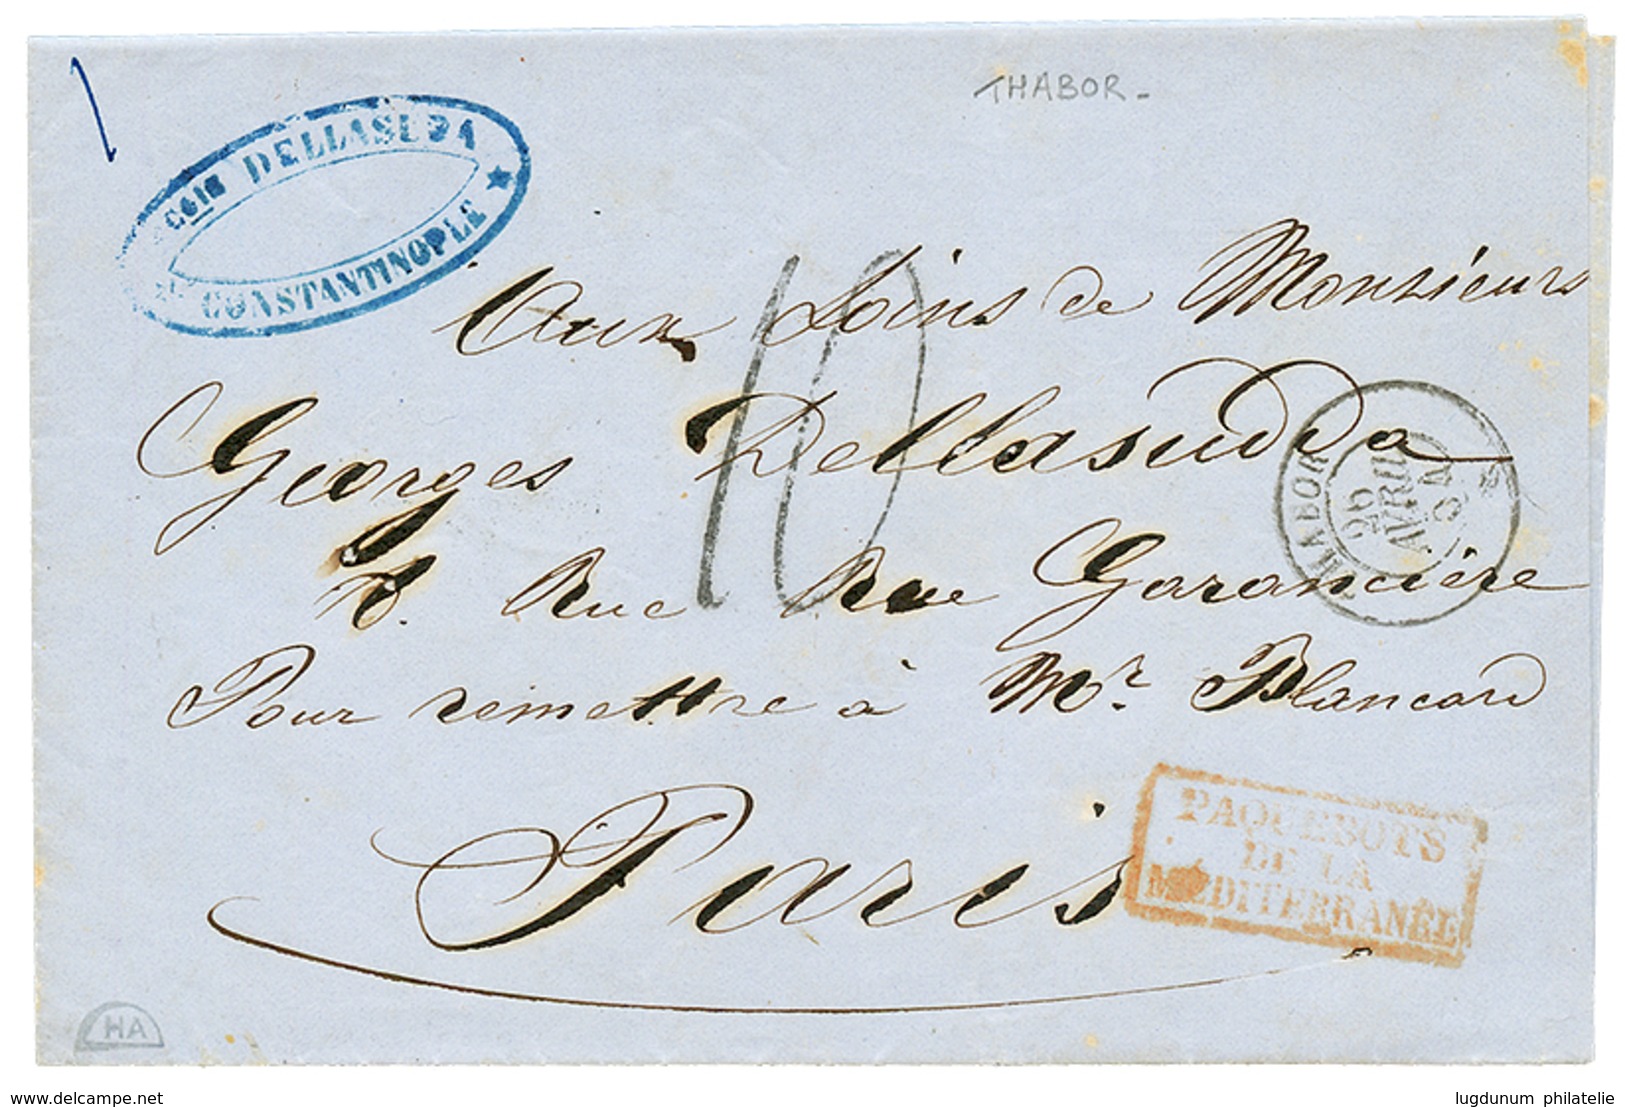 THABOR
DELLASUDA
CONSTANTINOPLE
10
Aux soins de Monsieurs
Georges Dellasudda
8. Rue Rue Garancière
Pour remettre à Mr. Blancard
Paris
THABOR
26
AVRIL
PAQUEBOTS
DE LA
MEDITERRANÉE
HA
delcampe.net
lugdunum philatelie